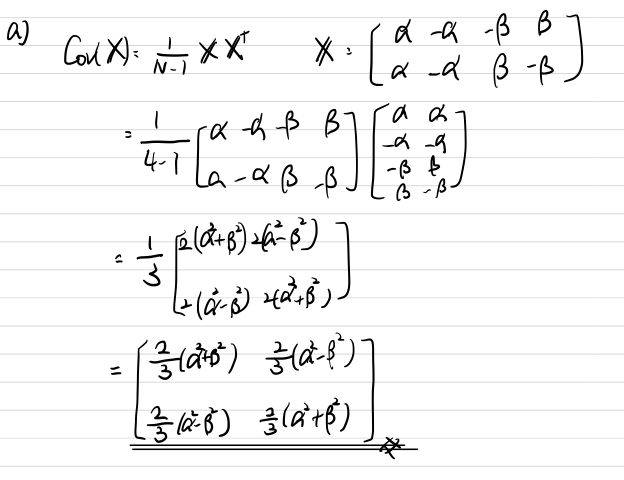 a) Cov(X) = 1/(N-1) X X^T   X = [α -α -β β; α -α β -β]
= 1/(4-1) [α -α -β β; α -α β -β] [α α; -α -α; -β β; β -β]
= 1/3 [2(α²+β²) 2(α²-β²); 2(α²-β²) 2(α²+β²)]
= [2/3(α²+β²) 2/3(α²-β²); 2/3(α²-β²) 2/3(α²+β²)]